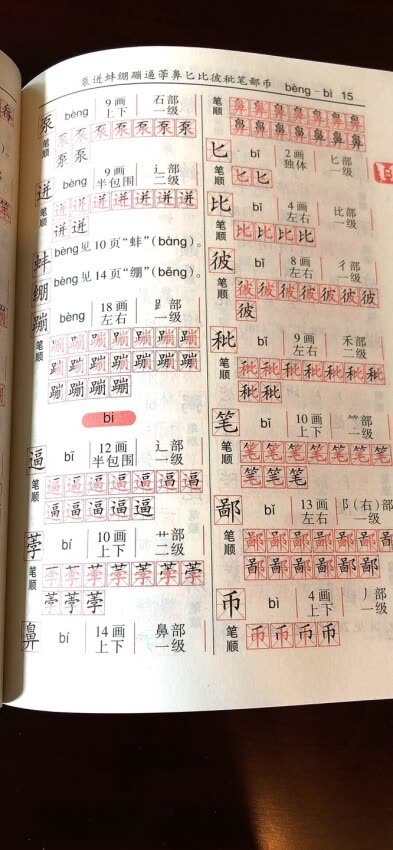 泵迸蚌绷蹦逼荸鼻匕比彼秕笔鄙币 bèng – bì 15
泵 bèng 9画 上下 石部 一级
笔顺 泵泵泵泵泵泵泵
泵泵
迸 bèng 9画 半包围 辶部 二级
笔顺 迸迸迸迸迸迸迸
迸迸
蚌 bèng见10页“蚌”(bàng)。
绷 bèng见14页“绷”(bēng)。
蹦 bèng 18画 左右 𧾷部 一级
笔顺 蹦蹦蹦蹦蹦蹦蹦
蹦蹦蹦蹦蹦蹦蹦
蹦蹦蹦蹦
bi
逼 bī 12画 半包围 辶部 一级
笔顺 逼逼逼逼逼逼逼
逼逼逼逼逼
荸 bí 10画 上下 艹部 二级
笔顺 荸荸荸荸荸荸荸
荸荸荸
鼻 bí 14画 上下 鼻部 一级
笔顺 鼻鼻鼻鼻鼻鼻鼻
鼻鼻鼻鼻鼻鼻鼻
匕 bǐ 2画 独体 匕部 一级
笔顺 匕匕
比 bǐ 4画 左右 比部 一级
笔顺 比比比比
彼 bǐ 8画 左右 彳部 一级
笔顺 彼彼彼彼彼彼彼
彼
秕 bǐ 9画 左右 禾部 二级
笔顺 秕秕秕秕秕秕秕
秕秕
笔 bǐ 10画 上下 ⺮部 一级
笔顺 笔笔笔笔笔笔笔
笔笔笔
鄙 bǐ 13画 左右 阝(右)部 一级
笔顺 鄙鄙鄙鄙鄙鄙鄙
鄙鄙鄙鄙鄙鄙
币 bì 4画 上下 丿部 一级
笔顺 币币币币